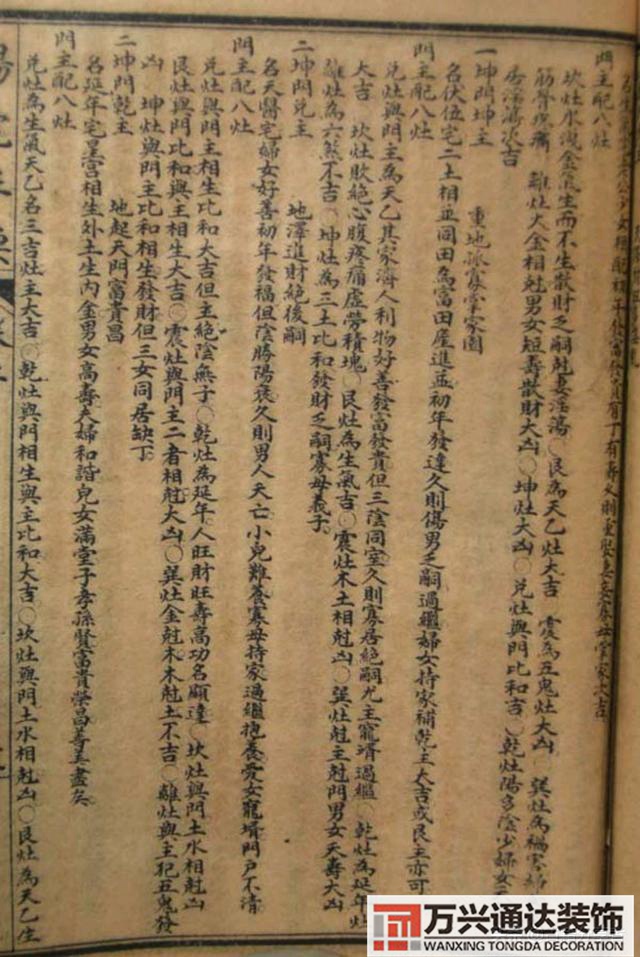 門主配八灶
坎灶水洩金氣生而不生散財乏嗣尅妻淫蕩○艮為天乙灶大吉 震為五鬼灶大凶○巽灶為禍害婦
大凶○坤灶大凶○兌灶與門比和吉○乾灶陽多陰少婦女
一坤門坤主 重地孤寡掌家園
名伏位宅二土相並同田為富田產進益初年發達久則傷男乏嗣過繼婦女持家補乾主大吉或艮主亦可
門主配八灶
兌灶與門主為天乙其家濟人利物好善發富發貴但三陰同室久則寡居絕嗣尤主寵壻過繼 乾灶為延年灶
大吉 坎灶敗絕心腹疼痛虛勞積塊○艮灶為生氣吉○震灶木土相尅凶○巽灶尅主尅門男女夭壽大凶
離灶為六煞不吉○坤灶為三土比和發財乏嗣寡母義子
二坤門兌主 地澤進財絕後嗣
名天醫宅婦女好善初年發福但陰勝陽衰久則男人夭亡小兒難養寡母持家過繼抱養愛女寵壻門戶不清
門主配八灶
兌灶與門主相生比和大吉但主絕陰無子○乾灶為延年人旺財旺壽高功名顯達○坎灶與門土水相尅凶
艮灶與門比和與主相生大吉○震灶與門主二者相尅大凶○巽灶金尅木木尅土不吉○離灶與主犯五鬼發
凶 坤灶與門主比和相生發財但三女同居缺丁
二坤門乾主 地起天門富貴昌
名延年宅星宮相生外土生內金男女高壽夫婦和諧兒女滿堂子孝孫賢富貴榮昌善美盡矣
門主配八灶
兌灶為生氣天乙名三吉灶主大吉○乾灶與門相生與主比和大吉○坎灶與門土水相尅凶○艮灶為天乙生
万兴通达装饰
WANXING TONGDA DECORATION